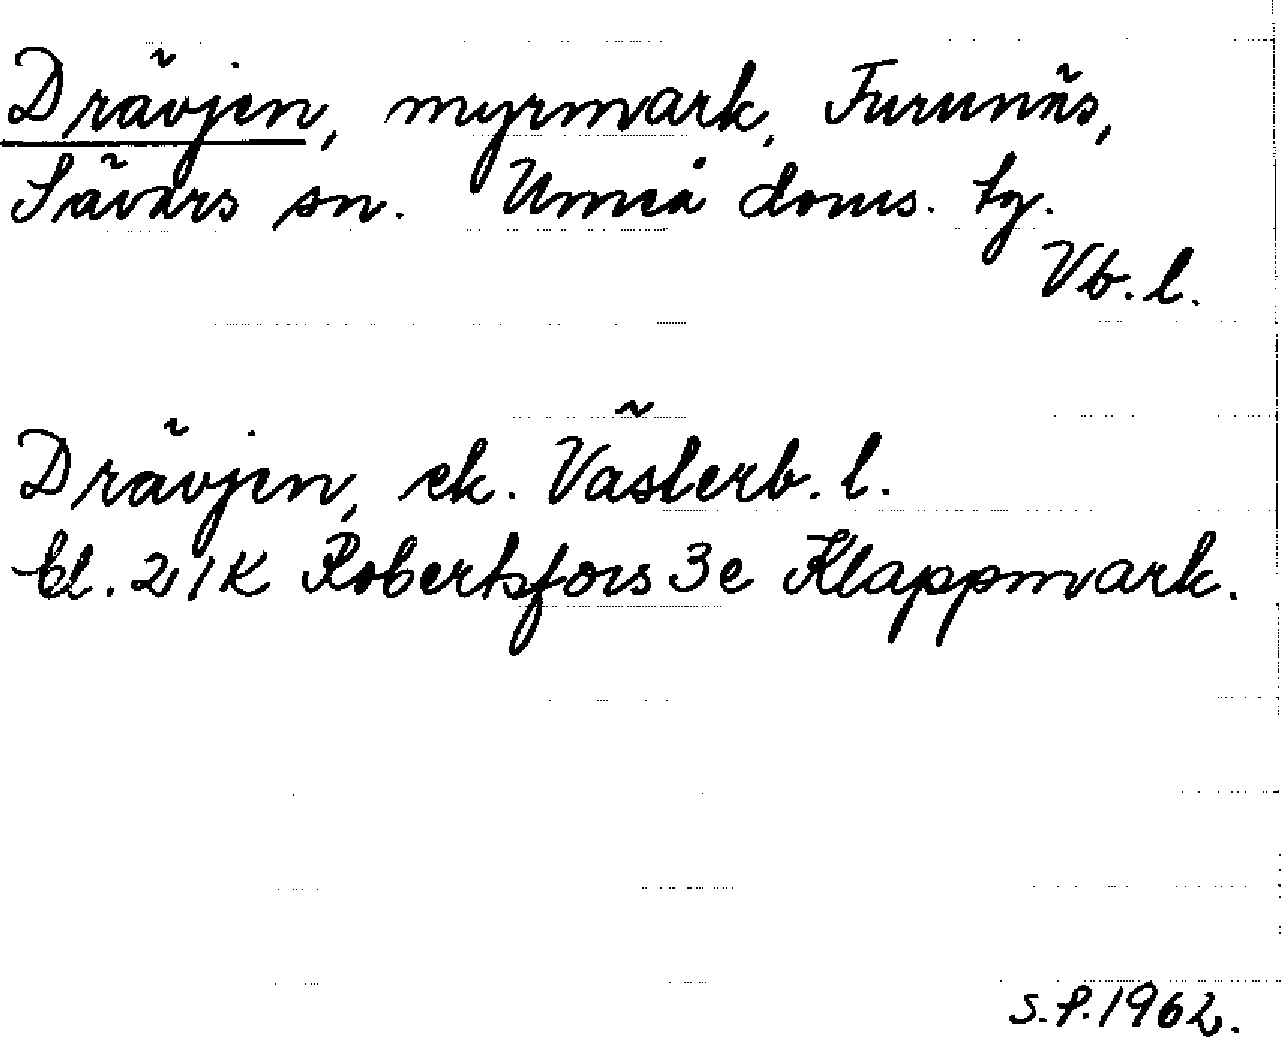 Drävjen, myrmark, Furunäs,
Sävars sn. Umeå doms. tg.
Vb. l.
Drävjen, ek. Västerb. l.
bl. 21K Robertsfors 3e Klappmark.
S.P. 1962.